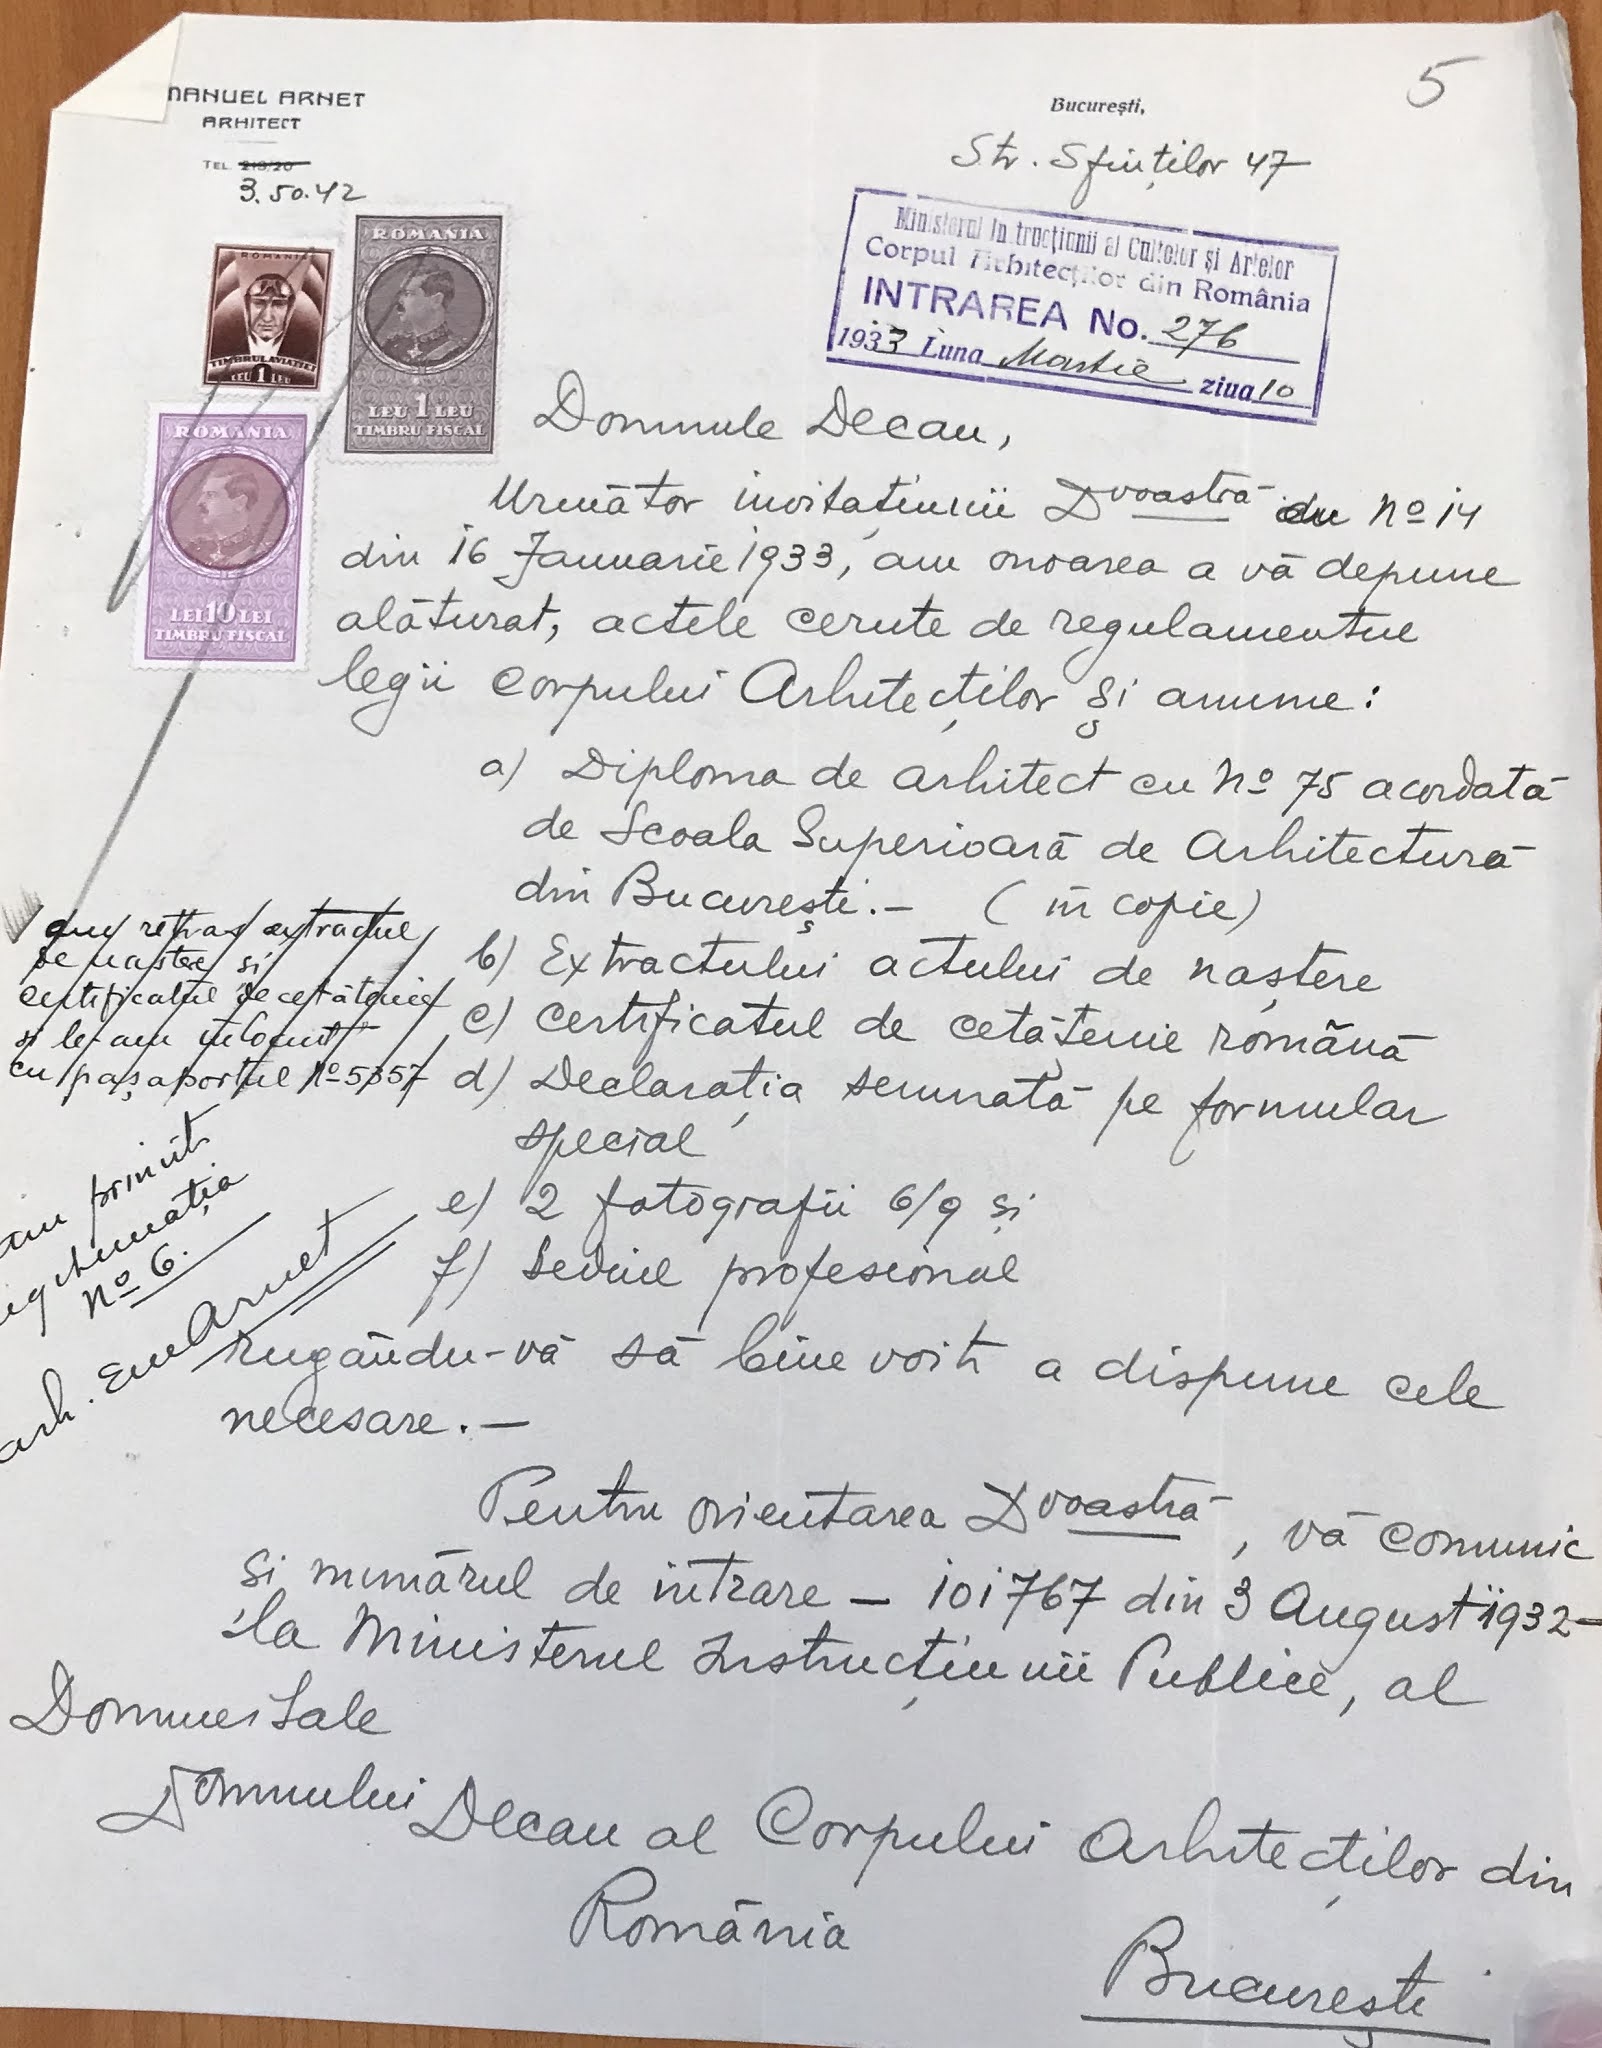 5
MANUEL ARNET
ARHITECT
TEL. 213/20
3.50.42
București,
Str. Sfinților 47
ROMANIA
TIMBRUL AVIAȚIEI
LEU 1 LEU
ROMANIA
LEU 1 LEU
TIMBRU FISCAL
ROMANIA
LEI 10 LEI
TIMBRU FISCAL
Ministerul Instrucțiunii al Cultelor și Artelor
Corpul Arhitecților din România
INTRAREA No. 276
1933 Luna Martie ziua 10
Domnule Decan,
Următor invitațiunii Dvoastră cu No 14
din 16 Januarie 1933, am onoarea a vă depune
alăturat, actele cerute de regulamentul
legii corpului Arhitecților și anume:
a) Diploma de arhitect cu No 75 acordată
de Scoala Superioară de Arhitectură
din București.- (în copie)
b) Extractului actului de naștere
c) certificatul de cetățenie română
d) Declarația semnată pe formular
special
e) 2 fotografii 6/9 și
f) Sediul profesional
rugându-vă să bine voiți a dispune cele
necesare.-
am retras extractul
de nastere si
certificatul de cetățenie
si le-am înlocuit
cu pașaportul No 5357
am primit
No 6.
arh. Em Arnet
Pentru orientarea Dvoastră, vă comunic
si numărul de intrare - 101767 din 3 August 1932-
la Ministerul Instrucțiunii Publice, al
Domniei Sale
Domnului Decan al Corpului Arhitecților din
România
București